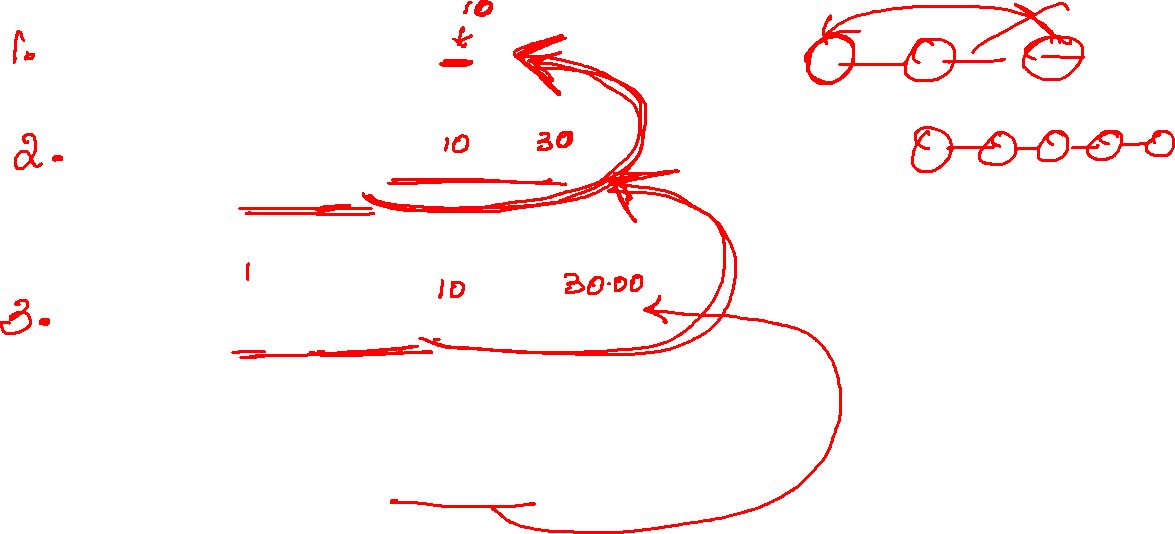 10
1.
2. 10 30
1 10 30.00
3.